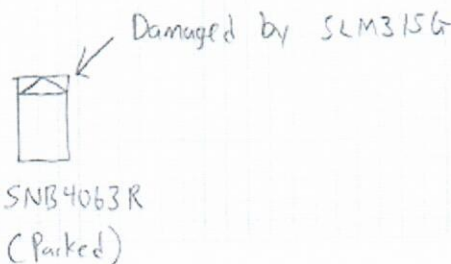 Damaged by SLM315G
SNB4063R
(Parked)